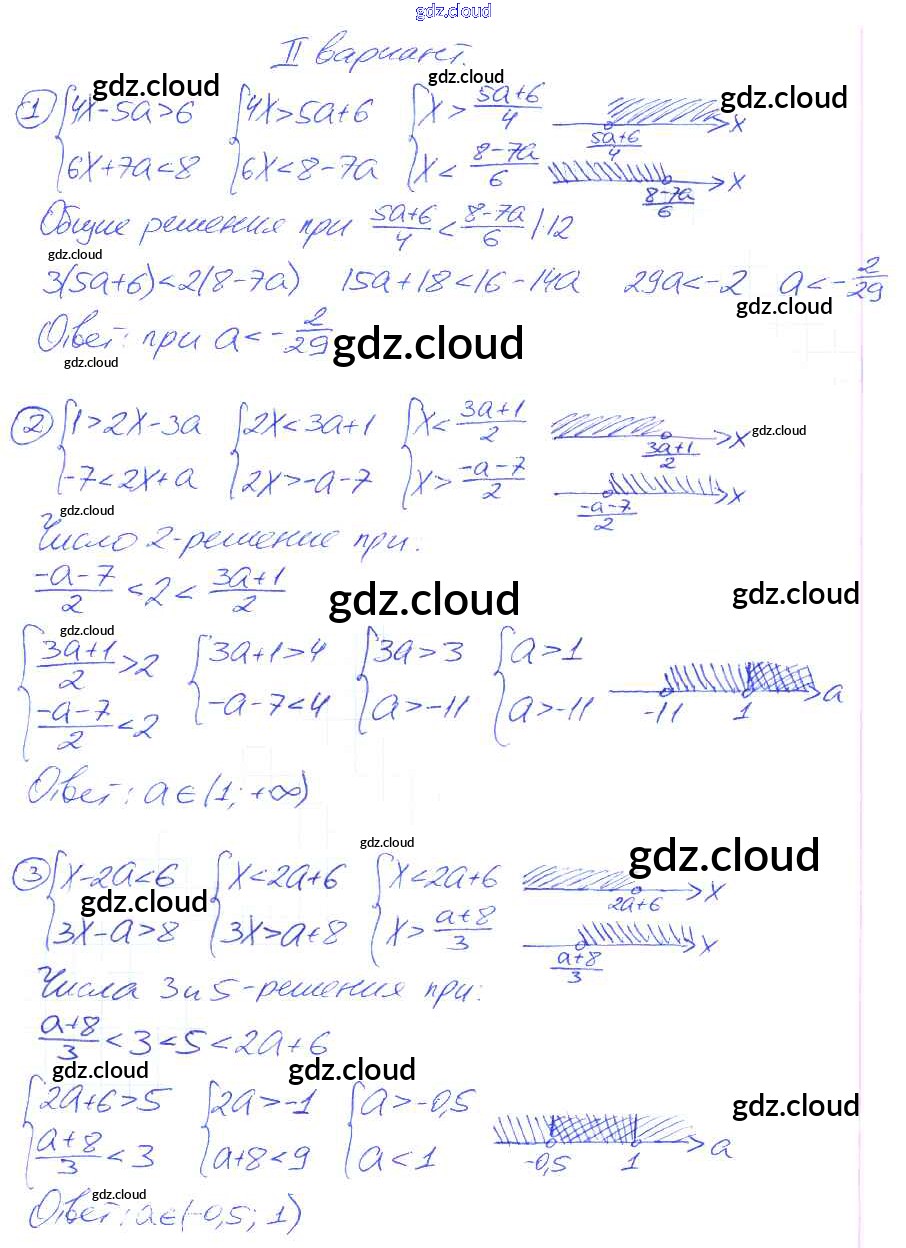 gdz.cloud
II вариант.
gdz.cloud gdz.cloud gdz.cloud
① {4x-5a>6 {4x>5a+6 {x>(5a+6)/4 (5a+6)/4 x
{6x+7a<8 {6x<8-7a {x<(8-7a)/6 (8-7a)/6 x
Общие решения при (5a+6)/4 < (8-7a)/6 |·12
gdz.cloud
3(5a+6)<2(8-7a) 15a+18<16-14a 29a<-2 a<-2/29
gdz.cloud
Ответ: при a<-2/29 gdz.cloud
gdz.cloud
② {1>2x-3a {2x<3a+1 {x<(3a+1)/2 (3a+1)/2 x gdz.cloud
{-7<2x+a {2x>-a-7 {x>(-a-7)/2 (-a-7)/2 x
gdz.cloud
Число 2-решение при:
(-a-7)/2 <2< (3a+1)/2 gdz.cloud gdz.cloud
gdz.cloud
{(3a+1)/2>2 {3a+1>4 {3a>3 {a>1
{(-a-7)/2<2 {-a-7<4 {a>-11 {a>-11 -11 1 a
Ответ: a∈(1; +∞)
gdz.cloud gdz.cloud
③ {x-2a<6 {x<2a+6 {x<2a+6 2a+6 x
gdz.cloud
{3x-a>8 {3x>a+8 {x>(a+8)/3 (a+8)/3 x
Числа 3 и 5-решения при:
(a+8)/3 <3<5<2a+6
gdz.cloud gdz.cloud gdz.cloud
{2a+6>5 {2a>-1 {a>-0,5
{(a+8)/3<3 {a+8<9 {a<1 -0,5 1 a
gdz.cloud
Ответ: a∈(-0,5; 1)